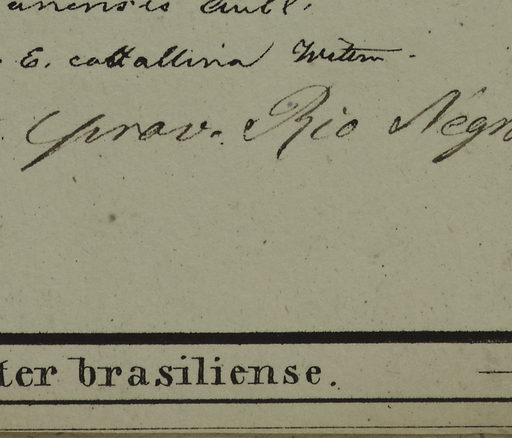 anensis Aubl.
E. cattallina Witem
prov. Rio Negro
ter brasiliense.